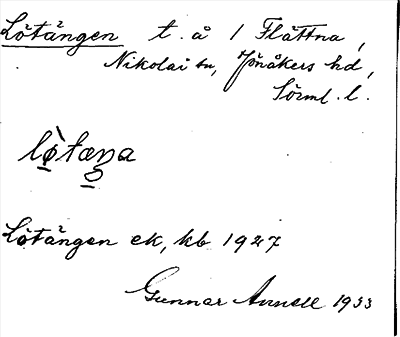 Lötängen t. å 1 Flättna,
Nikolai sn, Jönåkers hd,
Sörml. l.
lø̀tæŋa
Lötängen ek, kb 1927
Gunnar Arnell 1933